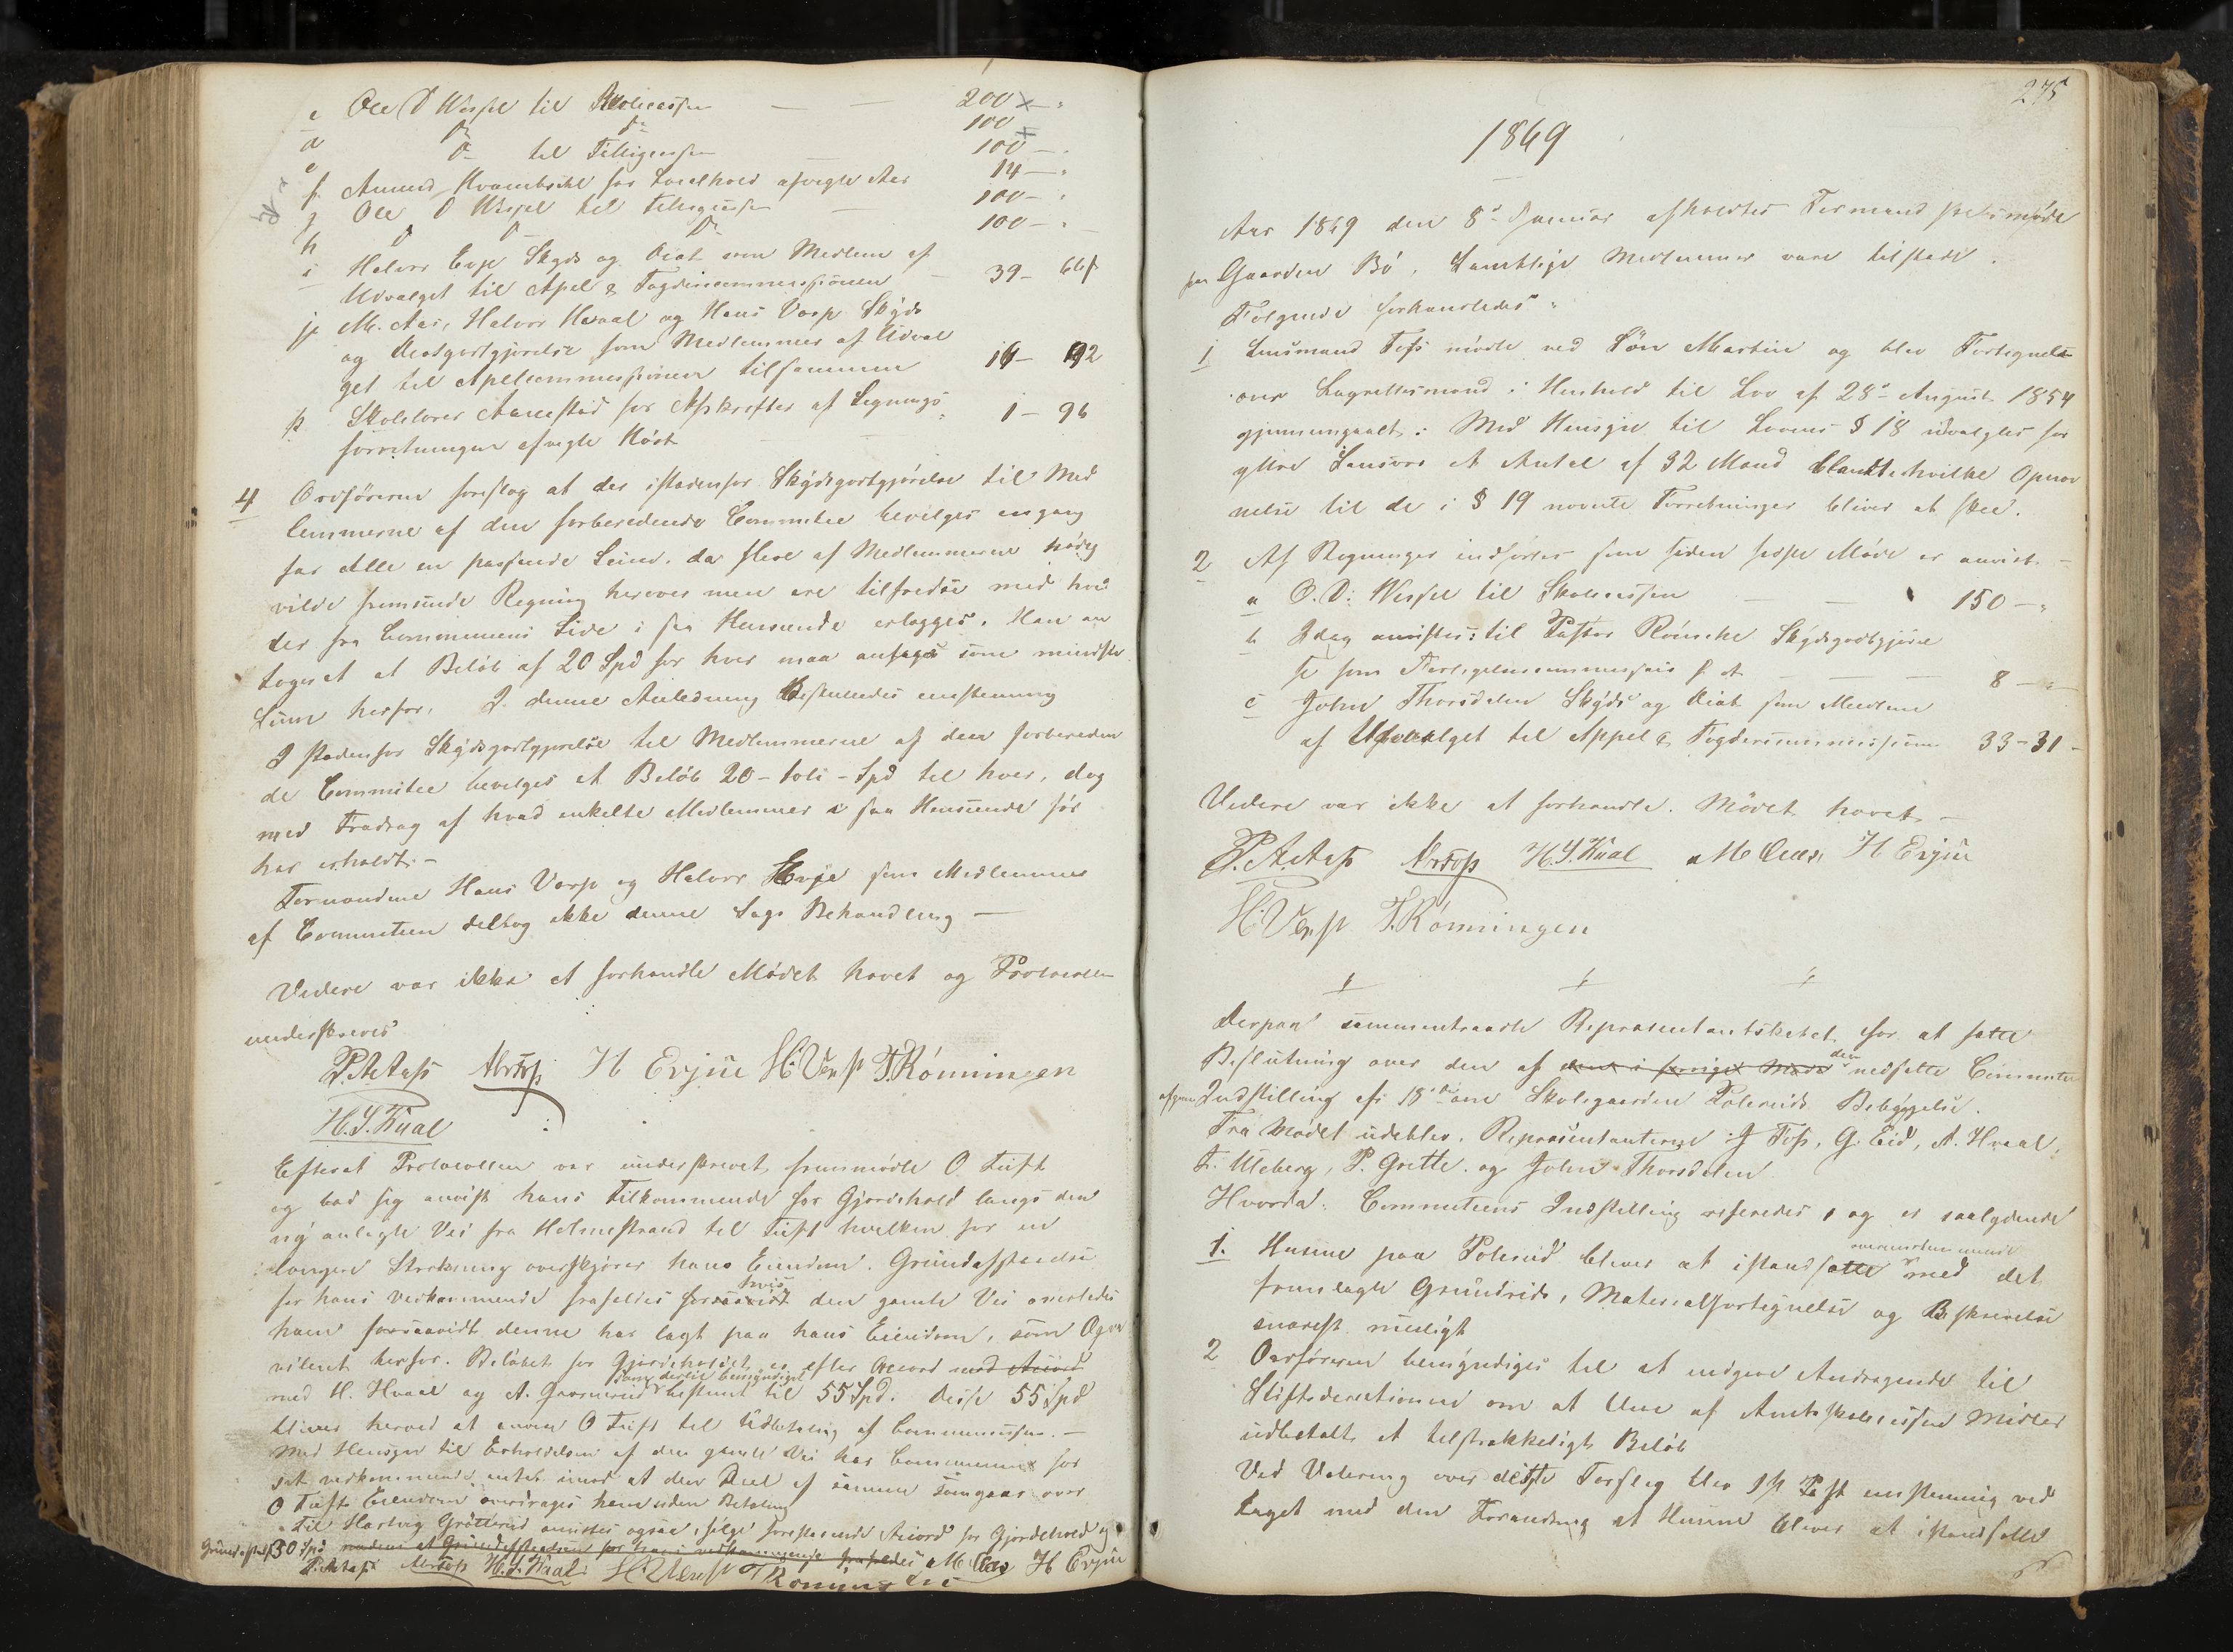 c Ole O Wespel til Skolecassen — — 200 —
d Do Do 100
e Do til Fattigcassen — 100 —
f Amund Hvambsahl for Locelhold afvigte Aar 14 —
g Ole O Wespel til Fattigcassen — 100 —
h Do Do 100 —
i Halvor Evje Skyds og Diæt som Medlem af
Udvalget til Apel & Fogdericommissionen — 39 — 66
j M. Aas, Halvor Hvaal og Hans Vorp Skyds
og Diætgodtgjørelse som Medlemmer af Udval
get til Apelcommissionen tilsammen 16 — 92
k Skolelærer Aarrestad for Afskrifter af Lignings
forretningen afvigte Høst 1 — 96
4 Ordføreren foreslog at der istedenfor Skydsgodtgjørelse til Med
lemmerne af den forberedende Commitee bevilges engang
for Alle en passende Sum, da flere af Medlemmerne nødig
vilde fremsende Regning herover men ere tilfredse med hvad
der fra Communens Side i saa Henseende erlægges. Han an
tager at et Beløb af 20 Spd for hver maa ansees som mindste
Sum herfor. I denne Anledning besluttedes enstemmig
I stedenfor Skydsgodtgjørelse til Medlemmerne af den forbereden
de Commitee bevilges et Beløb 20 - tolv - Spd til hver, dog
med Fradrag af hvad enkelte Medlemmer i saa Henseende før
har erholdt. —
Formændene Hans Vorp og Halvor Evje som Medlemmer
af Commiteen deltog ikke denne Sags Behandling —
Videre var ikke at forhandle Mødet hævet og Protocollen
underskrevet
P. A. Aass H Evju H. Vorp T. Rønningen
H. S. Hual
Efterat Protocollen var underskrevet fremmødte O. Tuft
og bad sig anvist hans Tilkommende for Gjerdehold langs den
ny anlagte Vei fra Holmestrand til Tuft hvilken for en
længere Strækning overskjærer hans Eiendom. Grundafstaaelse
for hans vedkommende frafaldes forsaavidt hvis den gamle Vei overlades
ham forsaavidt denne har lagt paa hans Eiendom, som Æqvi
valent herfor. Beløbet for Gjerdeholdet er efter Accord med Accord
med H. Hvaal og A. Gaasserud som dertil bemyndiget bestemt til 55 Spd. Disse 55 Spd
bliver herved at anvise O Tuft til Udbetaling af Communecassen. —
Med Hensyn til Erholdelsen af den gamle Vei har Communen for
sit vedkommende intet imod at den Deel af samme som gaar over
O Tufts Eiendom overdrages ham uden Betaling
Til Hartvig Grøtterød anvistes ogsaa ifølge foreståaende Accord for Gjerdehold og
Grundafst 30 Spd medens at Grundafstaaelsen for hans vedkommende frafaldes M. Aas H Evju
P. A. Aass H. S. Hual H. Vorp T Rønningen
275
1869
Aar 1869 den 8de Januar afholdtes Formandskabsmøde
paa Gaarden Bø, Samtlige Medlemmer vare tilstede.
Følgende forhandledes:
1 Lensmand Foss mødte ved Søn Martin og blev Fortegnelse
over Lagrettesmænd i Henhold til Lov af 28de August 1854
gjennemgaaet: Med Hensyn til Lovens § 18 udvalgtes for
ydre Sandsvær et Antal af 32 Mand blandt hvilke Opnæv
nelse til de i § 19 nævnte Forretninger bliver at skee.
2 Af Regninger indførtes som siden sidste Møde er anvist —
a O. O. Wespel til Skolecassen — — 150 —
b Idag anvistes: til Pastor Rønche Skydsgodtgjørel
se som Forligelsescommissair f. A. — — — 8 —
c John Thorsdalen Skyds og Diæt som Medlem
af Udvalget til Appel & Fogdericommission 33 - 31 -
Videre var ikke at forhandle. Mødet hævet —
P. A. Aass H. S. Hual M Aas, H Evju
H. Vorp T. Rønningen
Derpaa sammentraadte Repræsentantskabet for at fatte
Beslutning over den af den i forrige Møde den nedsatte Commitee
afgivne Indstilling af 18 om Skolegaarden Polerud's Bebyggelse.
Fra Mødet udeblev Repræsentanterne J Foss, G. Eid, A. Hvaal,
Fr. Uleberg, P. Grette og John Thorsdalen
Hvorda: Commiteens Indstilling refereredes, og er saalydende
1. Husene paa Polerud bliver at istandsætte overensstemmende med det
fremlagte Grundrids, Materialfortegnelse og Beskrivelse
snarest mueligt
2 Ordføreren bemyndiges til at indgive Andragende til
Stiftsdirectionen om at blive af Amtsskolecassens Midler
udbetalt et tilstrækkeligt Beløb
Ved Votering over disse Forslag blev 1ste Post enstemmig ved
taget med den Forandring at Husene bliver at istandsætte